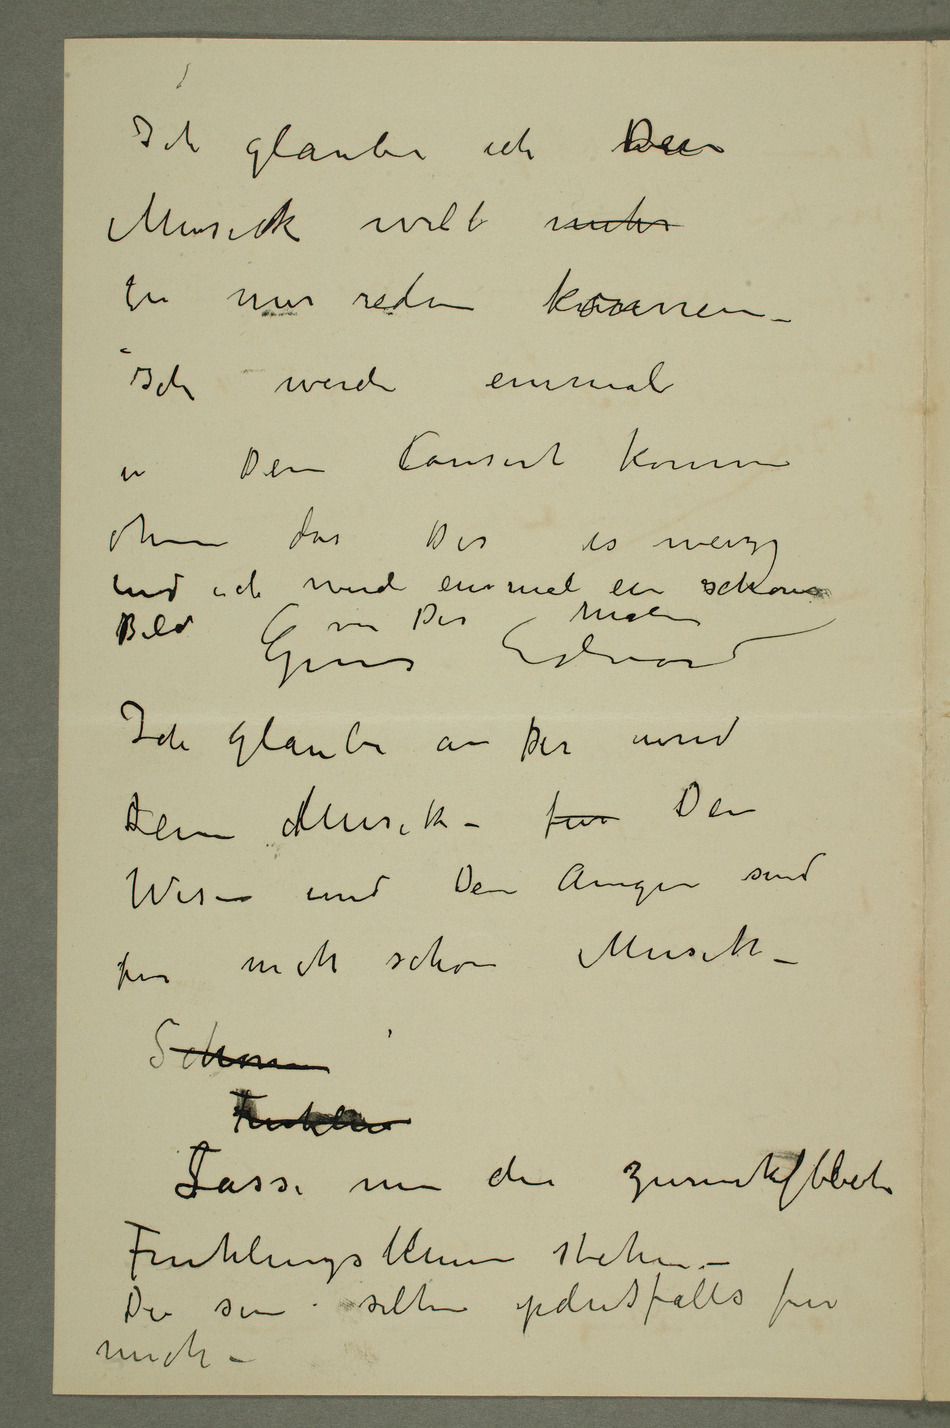 Ich glaube ich Dein
Musick will mehr
zu mir reden können –
Ich werde einmal
in Dein Consert kommen
ohne das Du es weiz
und ich werde einmal ein schönes
Bild von Dir malen
Grus Edvard
Ich glaube an Dir und
Dein Musik – für Dein
Wesen und Dein Augen sind
für mich schon Musik –
Schöne
Fruhlin
Lasse nur die zuruckblibete
Fruhlingsblumen stehen –
Die sin selten jedensfalls für
mich –